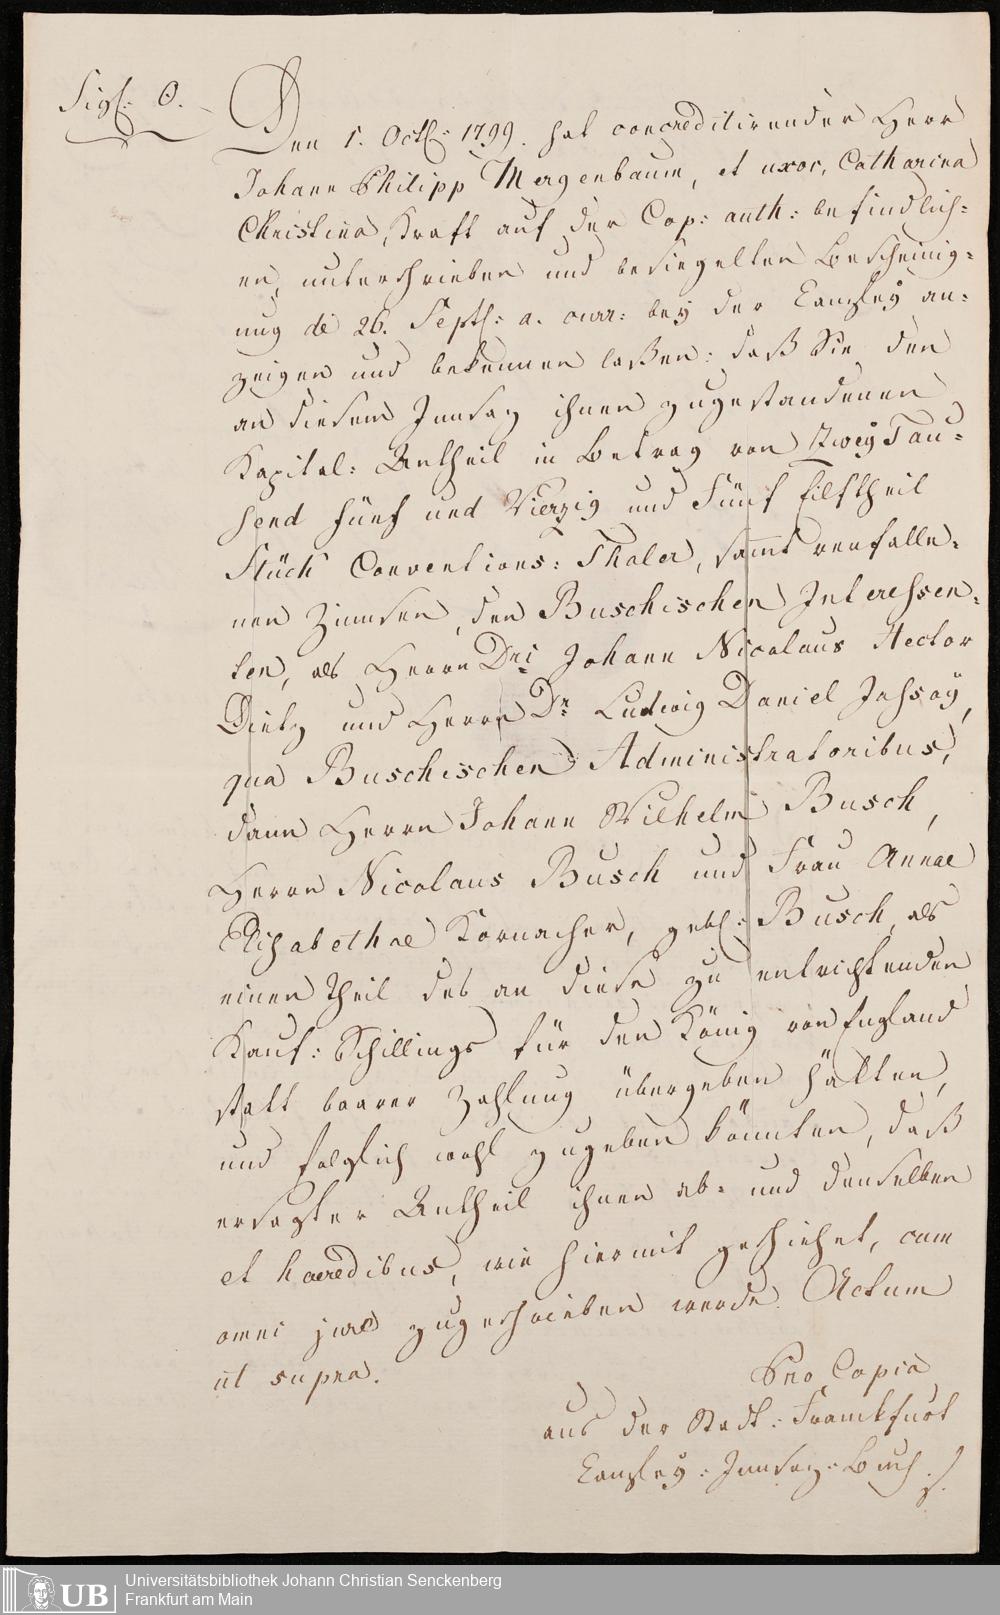 Sigl: O.
Den 1. Octb: 1799. hat concreditirender Herr
Johann Philipp Mergenbaum, et uxor, Catharina
Christina, Kraft auf der Cop: auth: befindlich-
en, unterschrieben und besiegelten Bescheinig-
ung de 26. Septb: a. curr: bey der Canzley an-
zeigen und bekennen laßen: daß Sie den
an diesem Innsaz ihnen zugestandenen
Kapital: Antheil in Betrag von Zwey Tau-
send fünf und Vierzig und Fünf Eilftheil
Stück Conventions: Thaler, sammt verfalle-
nen Zinnsen, den Buschischen Interessen-
ten, als Herrn Dni Johann Nicolaus Hector
Dietz und Herrn Dr. Ludwig Daniel Jassoÿ,
qua Buschischen Administratoribus,
dann Herrn Johann Wilhelm Busch,
Herrn Nicolaus Busch und Frau Annae
Elisabethae Kornacher, gebl: Busch, als
einen Theil des an diese zu entrichtenden
Kauf: Schillings für den König von England
statt baarer Zahlung übergeben hätten,
und folglich wohl zugeben könnten, daß
ersagter Antheil ihnen ab- und denselben
et haeredibus, wie hiermit geschiehet, cum
omni jure zugeschrieben werde. Actum
ut supra.
Pro Copia
aus der Stadt: Franckfurt
Canzleÿ: Innsaz: Buch.
UB
Universitätsbibliothek Johann Christian Senckenberg
Frankfurt am Main